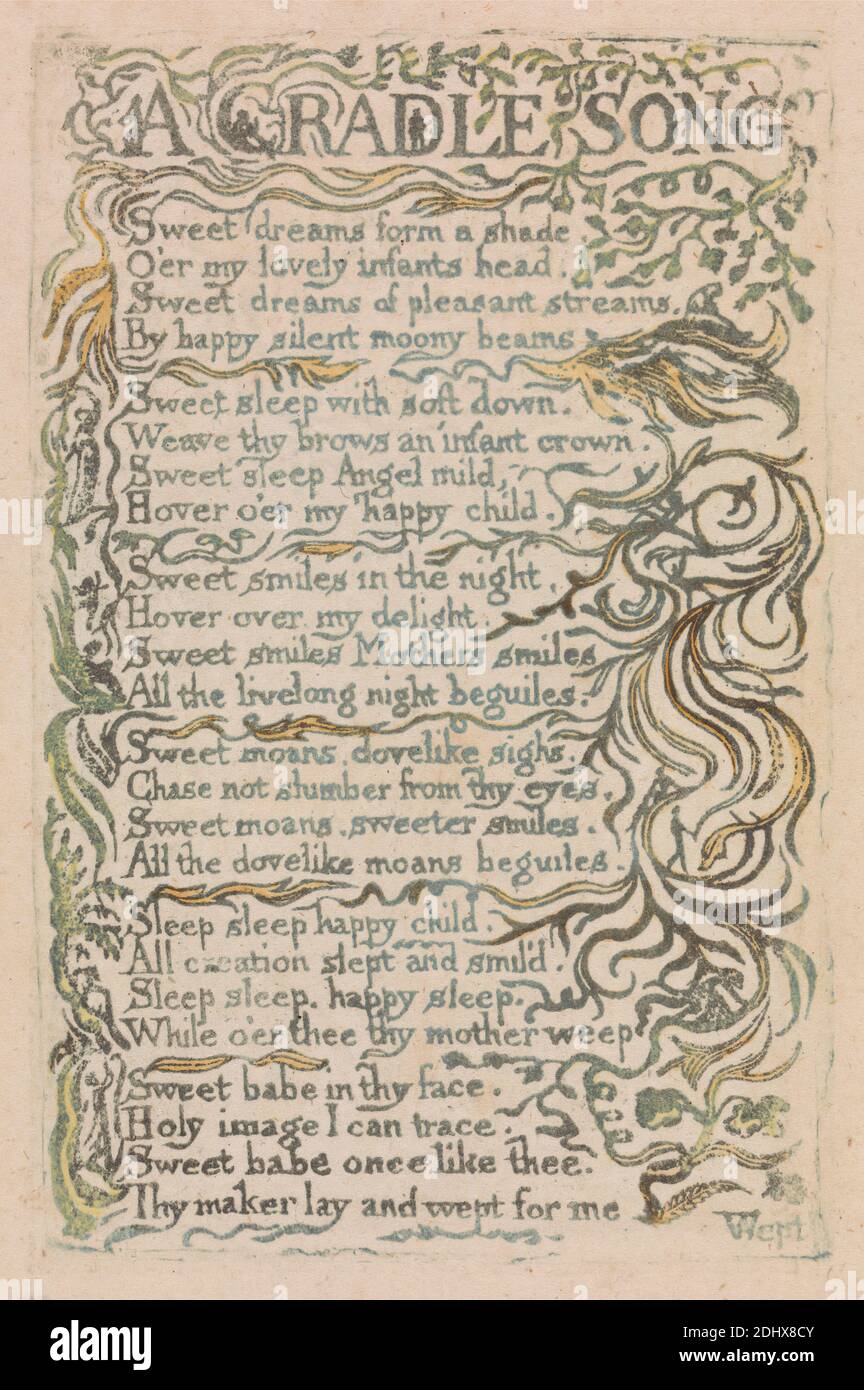 A CRADLE SONG
Sweet dreams form a shade.
O'er my lovely infants head.
Sweet dreams of pleasant streams.
By happy silent moony beams
Sweet sleep with soft down.
Weave thy brows an infant crown.
Sweet sleep Angel mild,
Hover o'er my happy child.
Sweet smiles in the night.
Hover over my delight.
Sweet smiles Mothers smiles
All the livelong night beguiles.
Sweet moans, dovelike sighs.
Chase not slumber from thy eyes.
Sweet moans, sweeter smiles.
All the dovelike moans beguiles.
Sleep sleep happy child.
All creation slept and smil'd.
Sleep sleep, happy sleep.
While o'er thee thy mother weep
Sweet babe in thy face.
Holy image I can trace.
Sweet babe once like thee.
Thy maker lay and wept for me
Wept
alamy
Image ID: 2DHX8CY
www.alamy.com